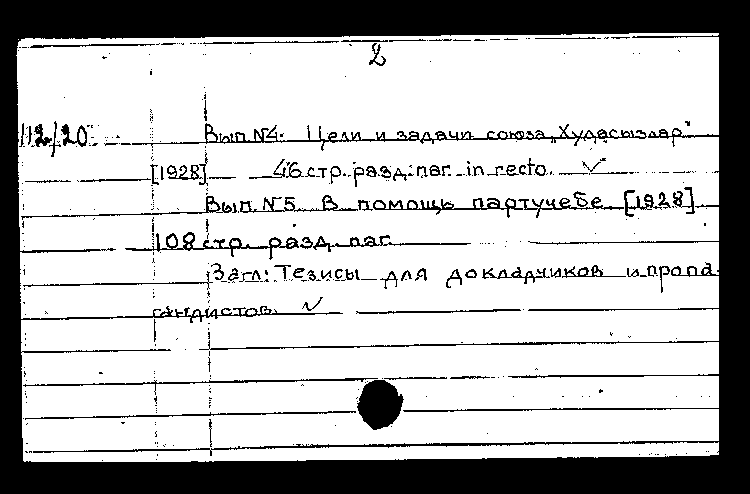 2
112/20 Вып. №4. Цели и задачи союза „Худасызлар"
[1928] 46 стр. разд. паг. in recto. ✓
Вып. №5. В помощь партучебе [1928]
108 стр. разд. паг.
Загл: Тезисы для докладчиков и пропа-
гандистов. ✓